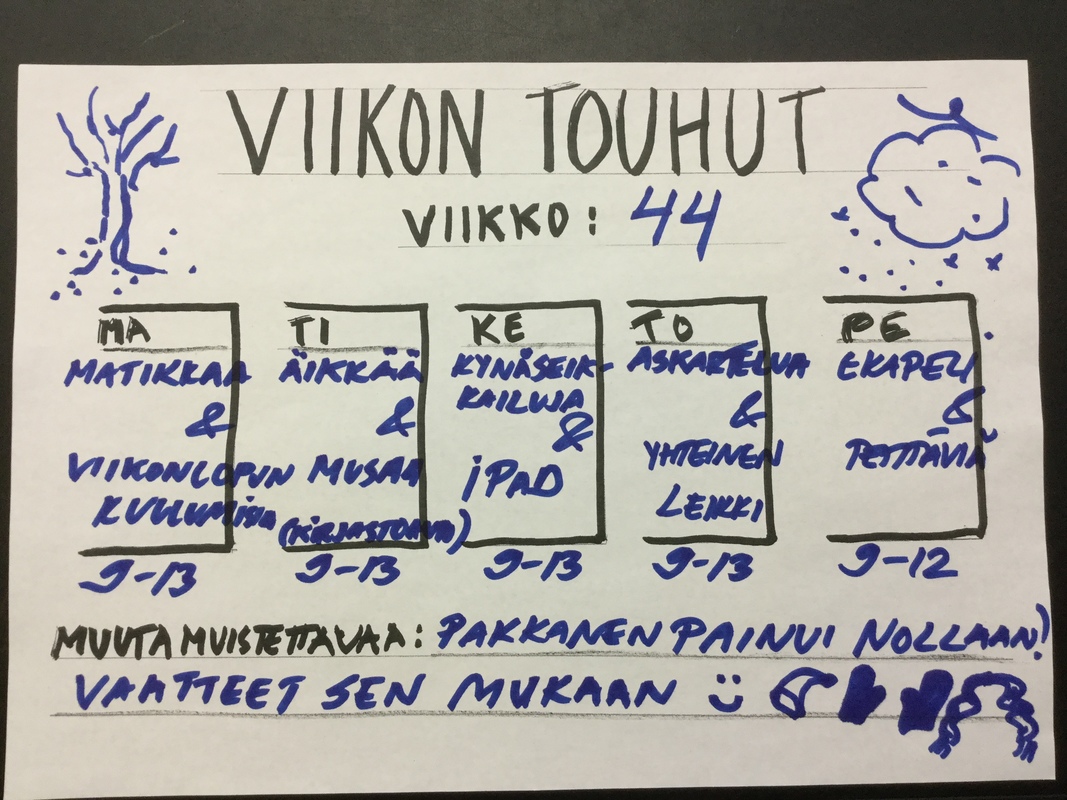 VIIKON TOUHUT
VIIKKO: 44
MA
MATIKKAA
&
VIIKONLOPUN
KUULUMISIA
9-13
TI
ÄIKKÄÄ
&
MUSAA
(KIRJASTOAUTO)
9-13
KE
KYNÄSEIK-
KAILUJA
&
iPAD
9-13
TO
ASKARTELUA
&
YHTEINEN
LEIKKI
9-13
PE
EKAPELI
&
TEHTÄVIÄ
9-12
MUUTA MUISTETTAVAA: PAKKANEN PAINUI NOLLAAN!
VAATTEET SEN MUKAAN